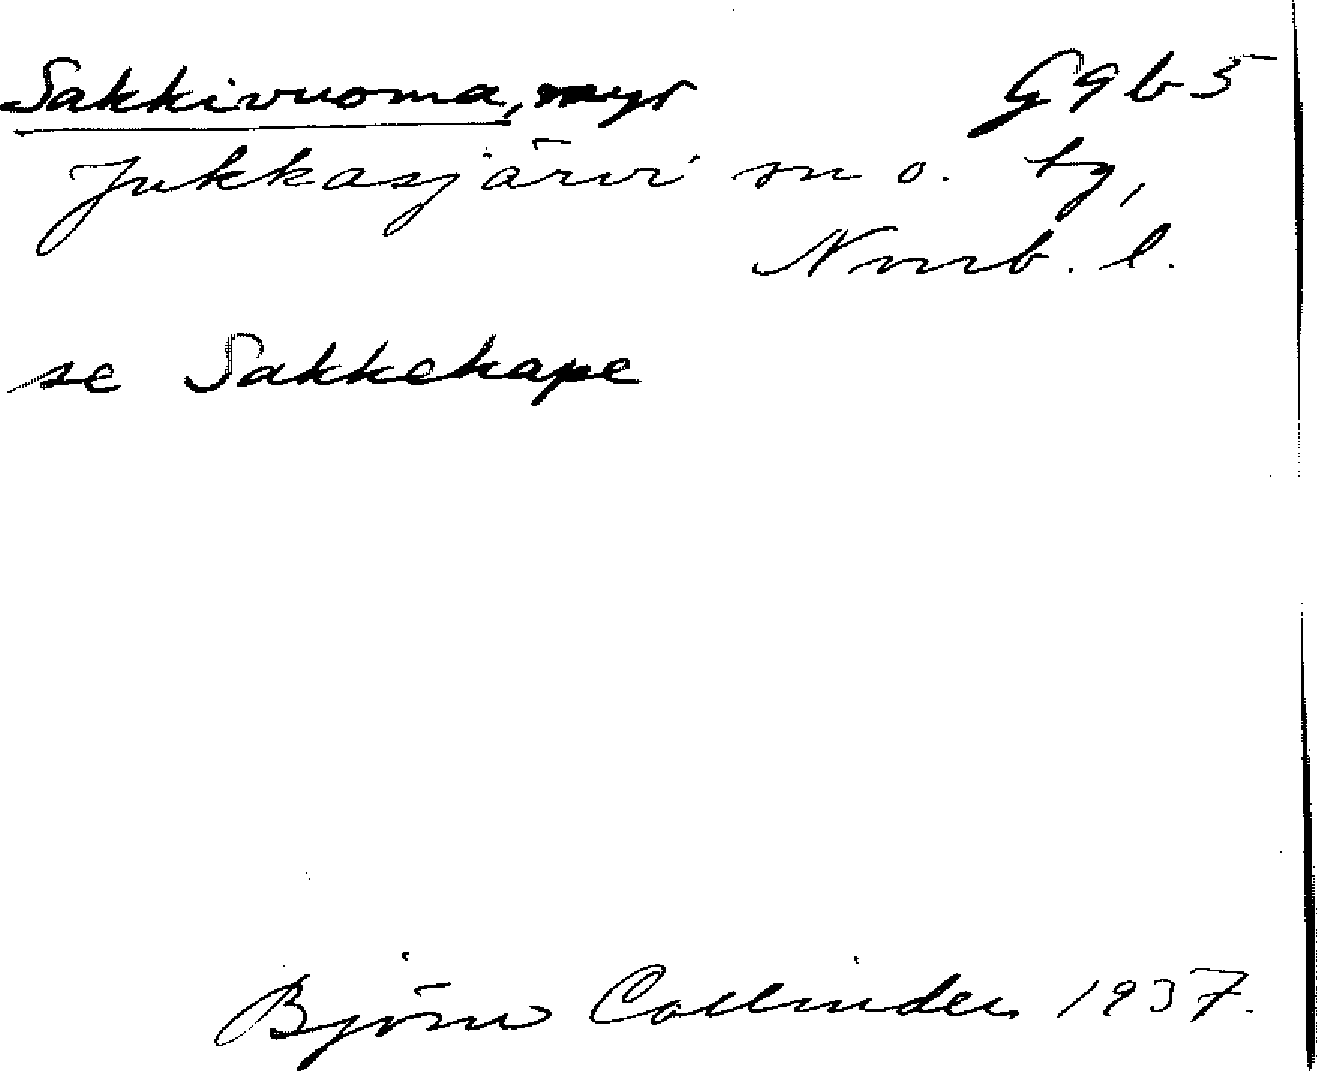 Sakkivuoma, myr G9b5
Jukkasjärvi sn o. tg,
Norrb. l.
se Sakkekape
Björn Collinder 1937.